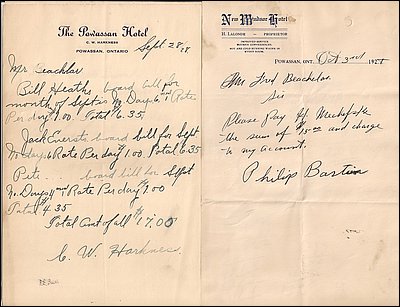 The Powassan Hotel
C. W. HARKNESS
POWASSAN, ONTARIO
Sept 28, 8
Mr Beachlar
Bill Heaths, board bill for
month of Sept is No Days 6 1/2 Rate
Per day 1.00. Total 6.35
Jack Everets board bill for Sept
No days 6 Rate Per day 1.00 Total 6.35
Pete board bill for Sept
No. Days 4 Rate Per day 1.00
Total 4.35
Total Amt of all $17.00
C. W. Harkness
New Windsor Hotel
H. LALONDE - PROPRIETOR
POWASSAN, ONT. Oct 3rd 1928
Mr Fred Beachelar
Sir
Please Pay
the sum of $15.00 and charge
to my account.
Philip Bastien